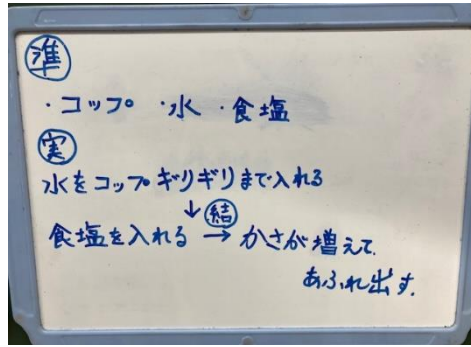 準
・コップ ・水 ・食塩
実
水をコップギリギリまで入れる
↓ 結
食塩を入れる → かさが増えて
あふれ出す.